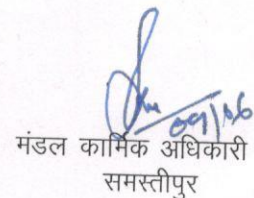 09/06
मंडल कार्मिक अधिकारी
समस्तीपुर